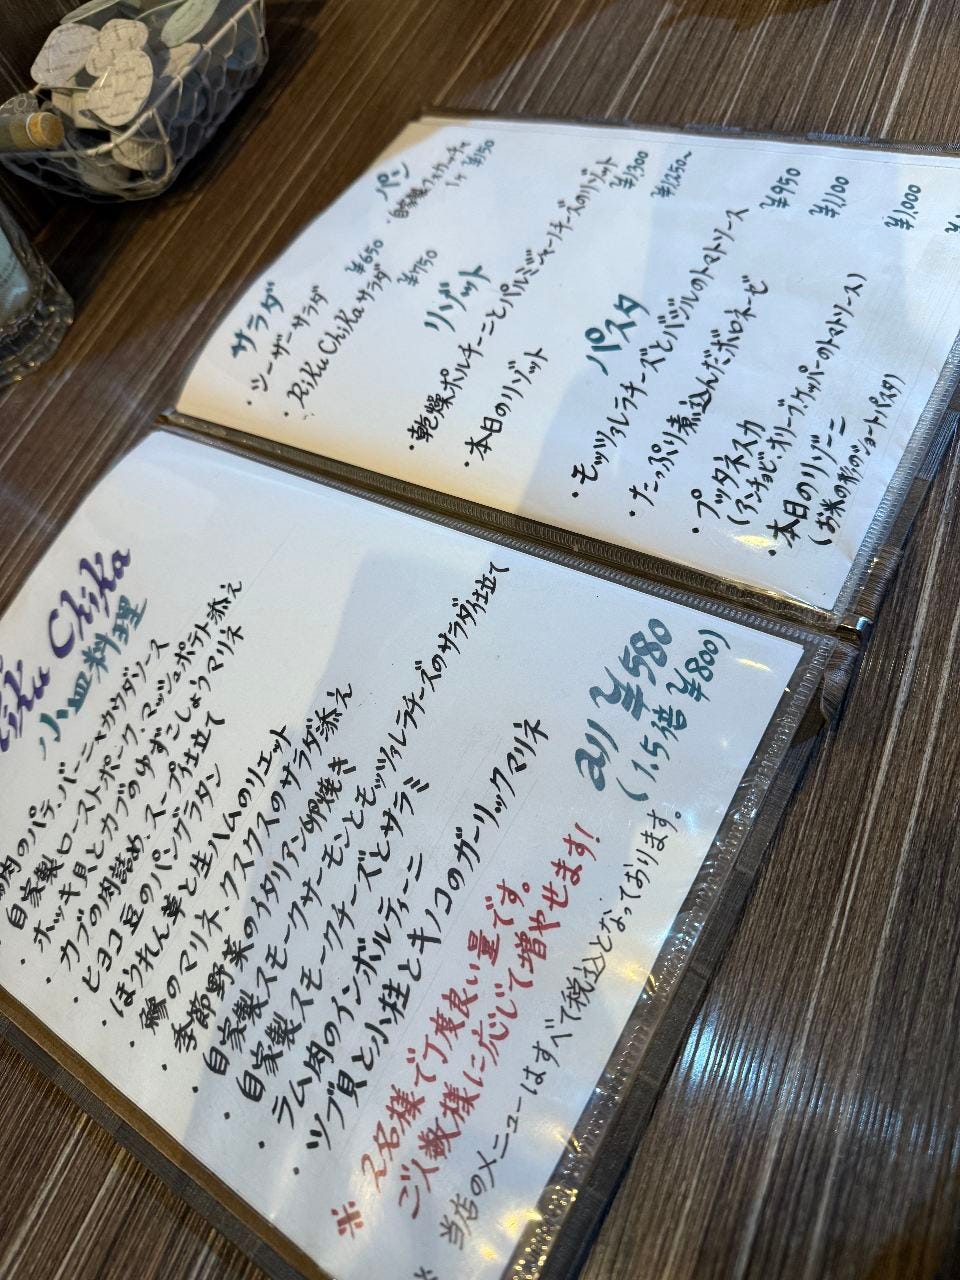 Chika
小皿料理
肉のパテ、バーニャカウダソース
自家製ローストポーク、マッシュポテト添え
ホッキ貝とカブのゆずこしょうマリネ
・カブの肉詰め、スープ仕立て
・ヒヨコ豆のパングラタン
・ほうれん草と生ハムのリエット
・鰺のマリネ、クスクスのサラダ添え
・季節野菜のイタリアン卵焼き
・自家製スモークサーモンとモッツァレラチーズのサラダ仕立て
・自家製スモークチーズとサラミ
・ラム肉のインボルティーニ
・ツブ貝と小柱とキノコのガーリックマリネ
all ¥580
(1.5倍 ¥800)
※ 2名様で丁度良い量です。
ご人数様に応じて増やせます!
※ 当店のメニューはすべて税込となっております。
サラダ
・シーザーサラダ ¥650
・Riku Chikaサラダ ¥750
パン
・自家製フォカッチャ
1ヶ ¥150
リゾット
・乾燥ポルチーニとパルミジャーノチーズのリゾット ¥1,300
・本日のリゾット ¥1,250〜
パスタ
・モッツァレラチーズとバジルのトマトソース ¥950
・たっぷり煮込んだボロネーゼ ¥1,100
・プッタネスカ ¥1,000
(アンチョビ、オリーブ、ケッパーのトマトソース)
・本日のリゾーニ
(お米の形のショートパスタ)